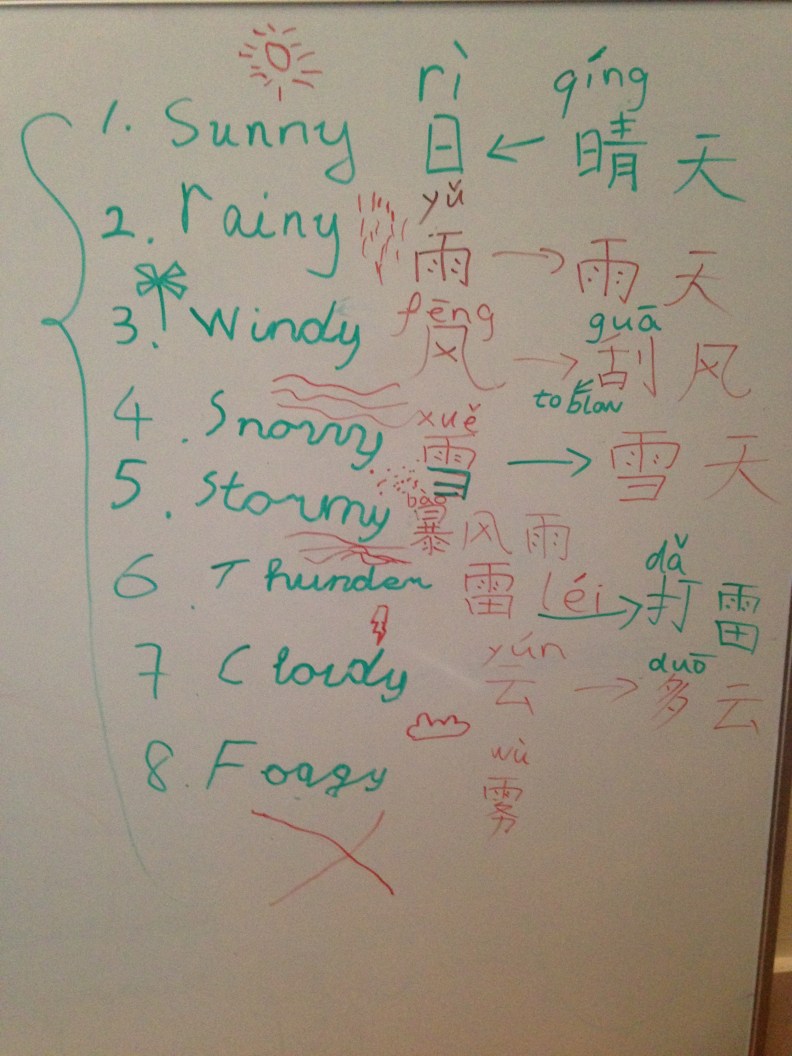 rì qíng
1. Sunny 日 ← 晴天
yǔ
2. rainy 雨 → 雨天
fēng guā
3. Windy 风 → 刮风
to blow
xuě
4. Snowy 雪 → 雪天
bào
5. Stormy 暴风雨
dǎ
6. Thunder 雷 léi → 打雷
yún duō
7 Cloudy 云 → 多云
wù
8. Foggy 雾